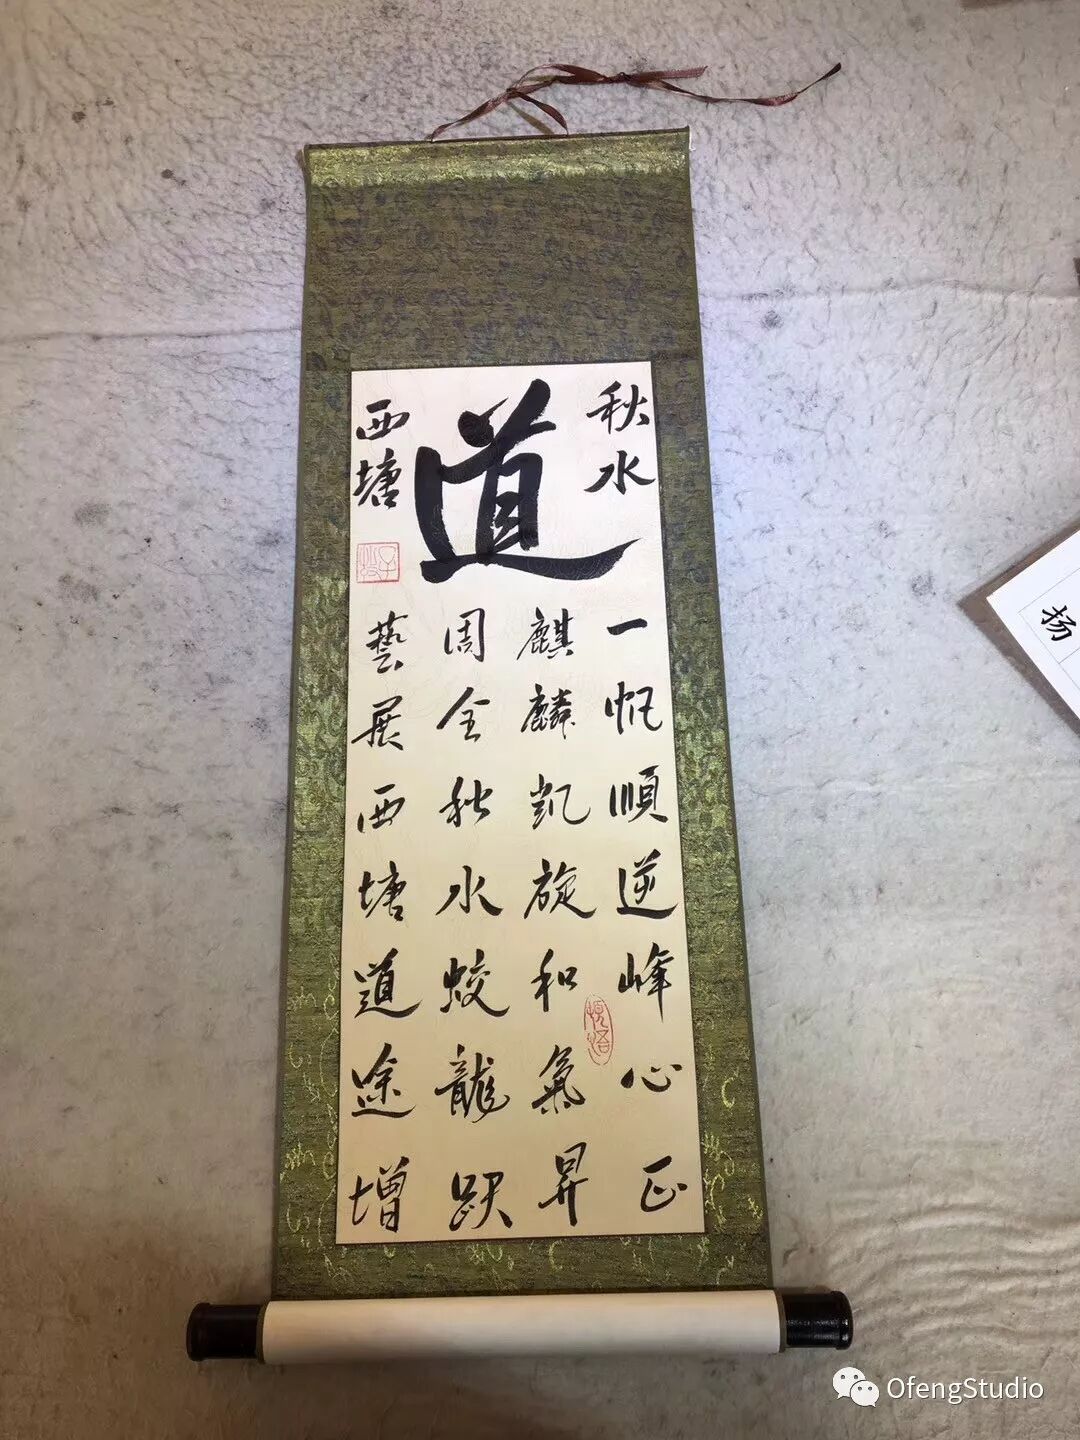 秋水
道
西塘
一帆順逆峰心正
麒麟凱旋和氣昇
周全秋水蛟龍跃
藝展西塘道途增
扬
OfengStudio